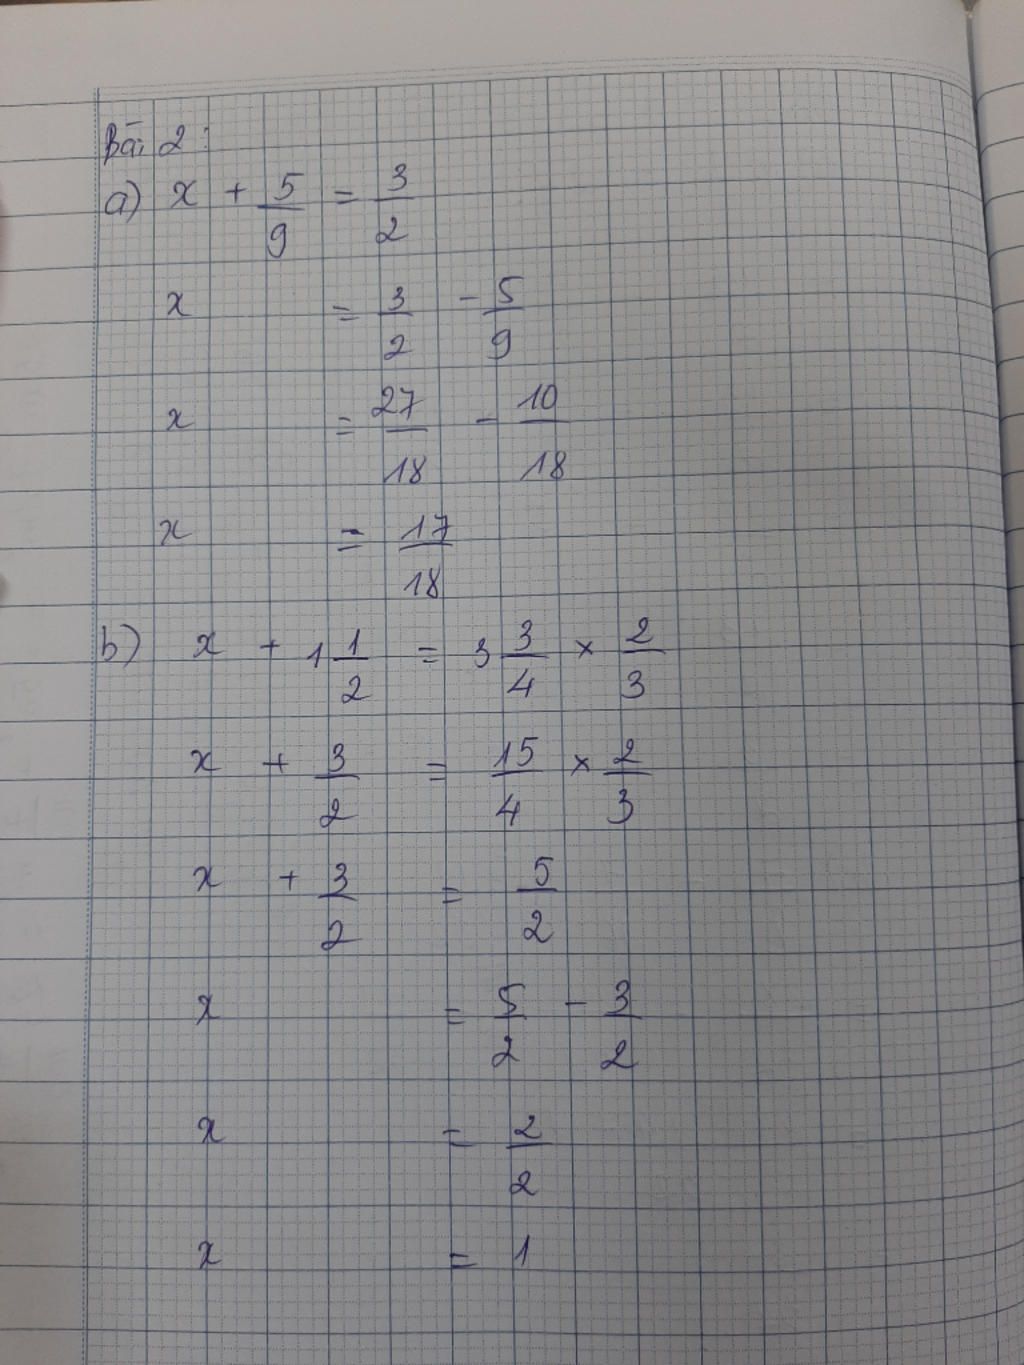 Bài 2:
a) x + 5/9 = 3/2
x = 3/2 - 5/9
x = 27/18 - 10/18
x = 17/18
b) x + 1 1/2 = 3 3/4 × 2/3
x + 3/2 = 15/4 × 2/3
x + 3/2 = 5/2
x = 5/2 - 3/2
x = 2/2
x = 1